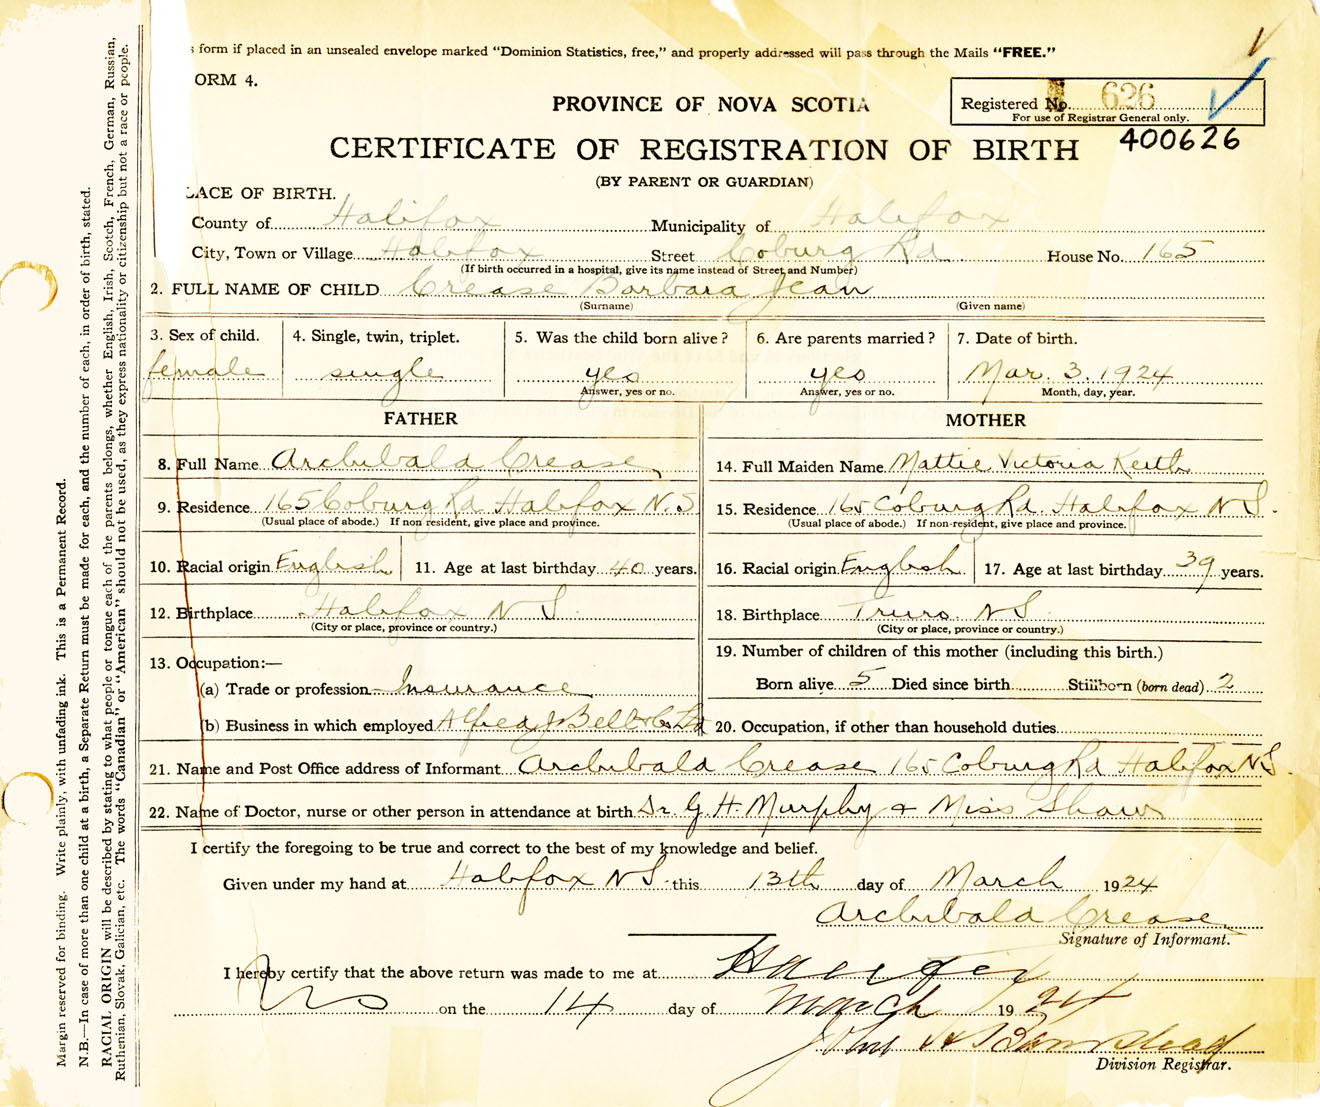 s form if placed in an unsealed envelope marked "Dominion Statistics, free," and properly addressed will pass through the Mails "FREE."
ORM 4.
PROVINCE OF NOVA SCOTIA
Registered No. 626
For use of Registrar General only.
400626
CERTIFICATE OF REGISTRATION OF BIRTH
(BY PARENT OR GUARDIAN)
LACE OF BIRTH.
County of Halifax Municipality of Halifax
City, Town or Village Halifax Street Coburg Rd House No. 165
(If birth occurred in a hospital, give its name instead of Street and Number)
2. FULL NAME OF CHILD Crease Barbara Jean
(Surname) (Given name)
3. Sex of child. 4. Single, twin, triplet. 5. Was the child born alive? 6. Are parents married? 7. Date of birth.
female single yes yes Mar. 3. 1924
Answer, yes or no. Answer, yes or no. Month, day, year.
FATHER
8. Full Name Archibald Crease
9. Residence 165 Coburg Rd Halifax N.S
(Usual place of abode.) If non resident, give place and province.
10. Racial origin English 11. Age at last birthday 40 years.
12. Birthplace Halifax N S.
(City or place, province or country.)
13. Occupation:—
(a) Trade or profession Insurance
(b) Business in which employed Alfred J Bell & Co Ltd
MOTHER
14. Full Maiden Name Mattie Victoria Keith
15. Residence 165 Coburg Rd. Halifax N S.
(Usual place of abode.) If non-resident, give place and province.
16. Racial origin English 17. Age at last birthday 39 years.
18. Birthplace Truro. N S.
(City or place, province or country.)
19. Number of children of this mother (including this birth.)
Born alive 5 Died since birth Stillborn (born dead) 2
20. Occupation, if other than household duties
21. Name and Post Office address of Informant Archibald Crease 165 Coburg Rd Halifax N S.
22. Name of Doctor, nurse or other person in attendance at birth Dr. G. H. Murphy + Miss Shaw
I certify the foregoing to be true and correct to the best of my knowledge and belief.
Given under my hand at Halifax N S. this 13th day of March 1924
Archibald Crease
Signature of Informant.
I hereby certify that the above return was made to me at Halifax
NS on the 14 day of March 1924
John A Barnstead
Division Registrar.
Margin reserved for binding. Write plainly, with unfading ink. This is a Permanent Record.
N.B.—In case of more than one child at a birth, a Separate Return must be made for each, and the number of each, in order of birth, stated.
RACIAL ORIGIN will be described by stating to what people or tongue each of the parents belongs, whether English, Irish, Scotch, French, German, Russian,
Ruthenian, Slovak, Galician, etc. The words "Canadian" or "American" should not be used, as they express nationality or citizenship but not a race or people.